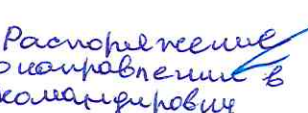 Распоряжение
о направлении в
командировку